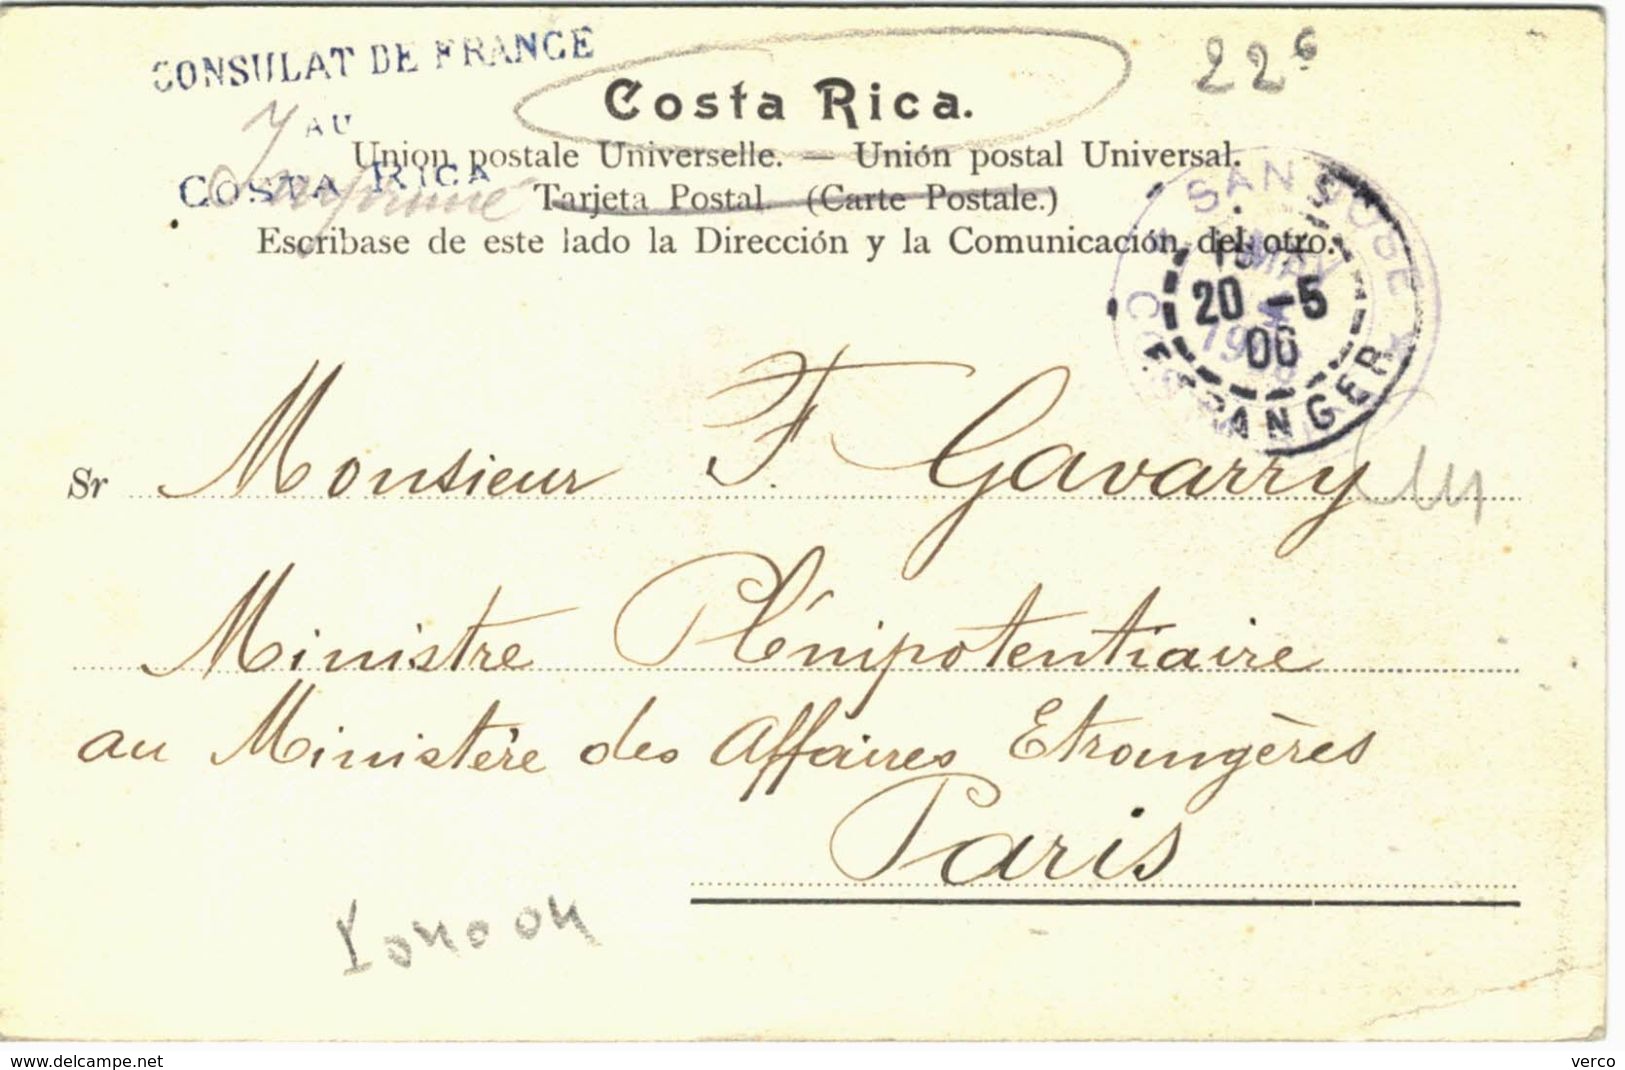 CONSULAT DE FRANCE
AU
COSTA RICA
Imprimé
22 6
Costa Rica.
Union postale Universelle. — Unión postal Universal.
Tarjeta Postal. (Carte Postale.)
Escribase de este lado la Dirección y la Comunicación del otro.
SAN JOSE
MAY
20 -5
06
ETRANGER
Sr Monsieur F. Gavarry
Ministre Plénipotentiaire
au Ministère des Affaires Etrangères
Paris
www.delcampe.net
verco